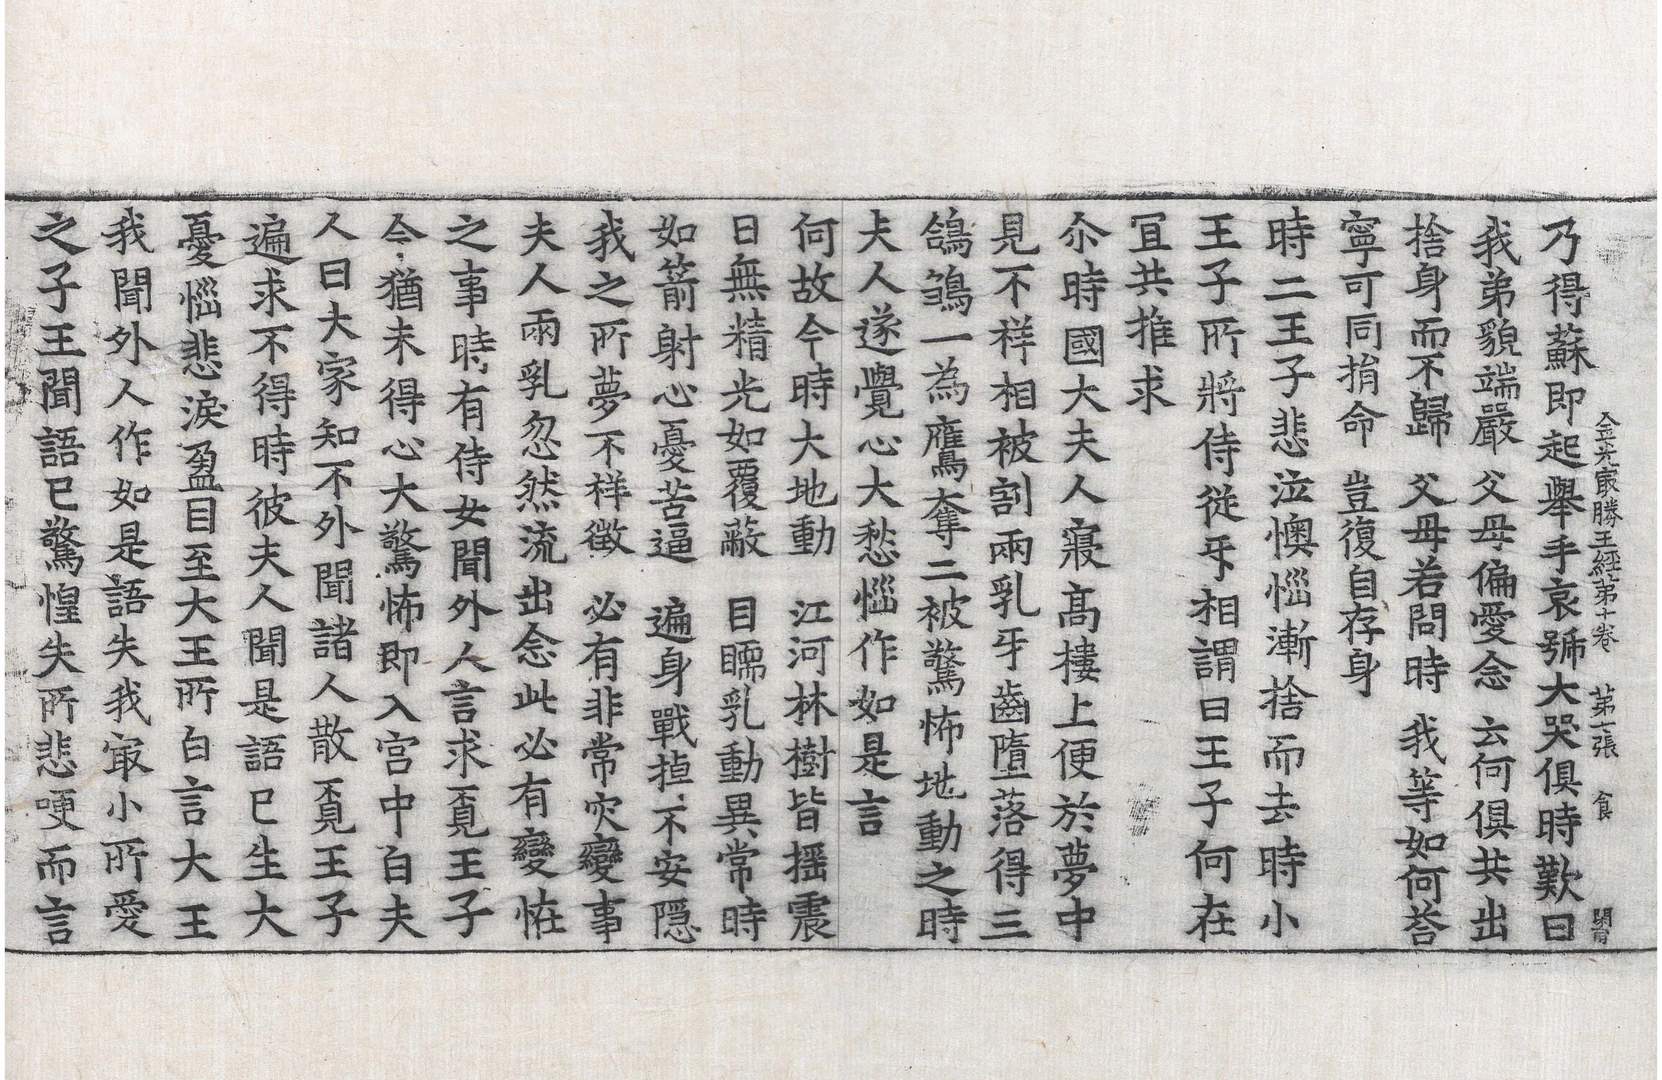 金光㝡勝王經第十卷 第七張 食
乃得蘇即起舉手哀號大哭俱時歎曰
我弟貌端嚴 父母偏愛念 云何俱共出
捨身而不歸 父母若問時 我等如何荅
寧可同捐命 豈復自存身
時二王子悲泣懊惱漸捨而去時小
王子所將侍從互相謂曰王子何在
冝共推求
尒時國大夫人寢高樓上便於夢中
見不祥相被割兩乳牙齒墮落得三
鴿鶵一為鷹奪二被驚怖地動之時
夫人遂覺心大愁惱作如是言
何故今時大地動 江河林樹皆搖震
日無精光如覆蔽 目瞤乳動異常時
如箭射心憂苦逼 遍身戰掉不安隱
我之所夢不祥徵 必有非常灾變事
夫人兩乳忽然流出念此必有變恠
之事時有侍女聞外人言求覓王子
今猶未得心大驚怖即入宮中白夫
人曰大家知不外聞諸人散覓王子
遍求不得時彼夫人聞是語已生大
憂惱悲淚盈目至大王所白言大王
我聞外人作如是語失我㝡小所愛
之子王聞語已驚惶失所悲哽而言